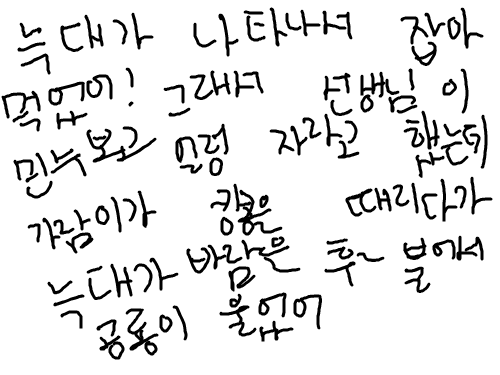 늑대가 나타나서 잡아
먹었어! 그래서 선생님이
민누보고 얼렁 자라고 했는데
가람이가 캉은 때리다가
늑대가 바람은 후~ 불어서
공룡이 울었어